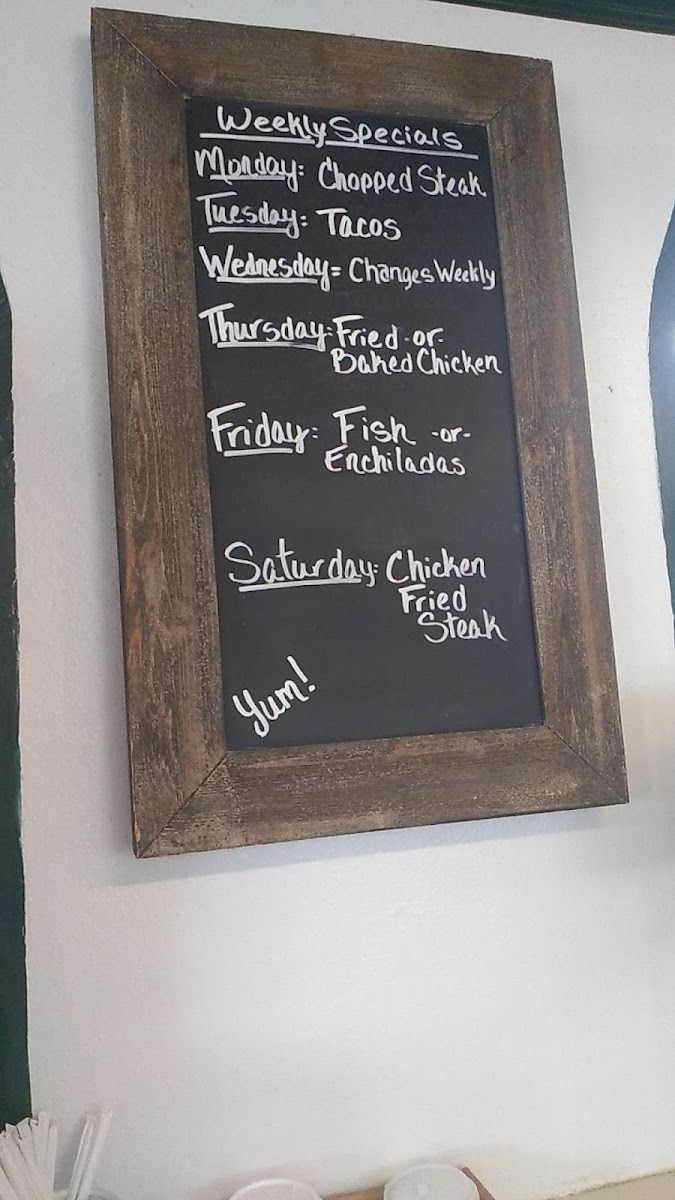 Weekly Specials
Monday: Chopped Steak
Tuesday: Tacos
Wednesday= Changes Weekly
Thursday: Fried -or-
Baked Chicken
Friday: Fish -or-
Enchiladas
Saturday: Chicken
Fried
Steak
Yum!